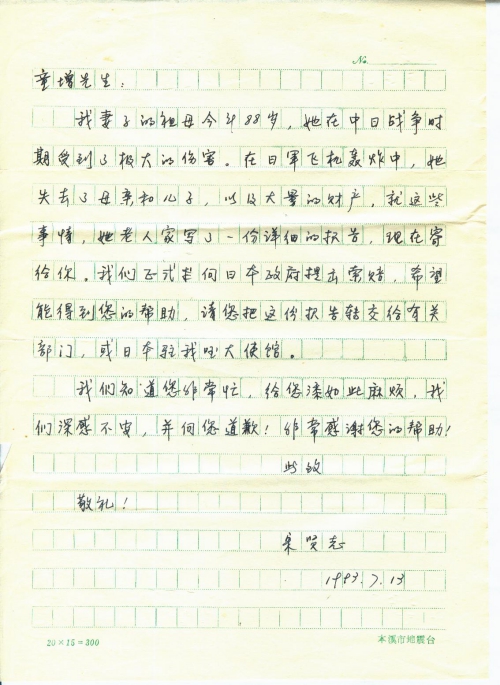 No.
童增先生：
我妻子的祖母今年88岁，她在中日战争时
期受到了极大的伤害。在日军飞机轰炸中，她
失去了母亲和儿子，以及大量的财产，就这些
事情，她老人家写了一份详细的报告，现在寄
给你。我们正式并向日本政府提出索赔，希望
能得到您的帮助，请您把这份报告转交给有关
部门，或日本驻我国大使馆。
我们知道您非常忙，给您添如此麻烦，我
们深感不安，并向您道歉！非常感谢您的帮助！
此致
敬礼！
贤志
1993.7.13
20×15=300
本溪市地震台